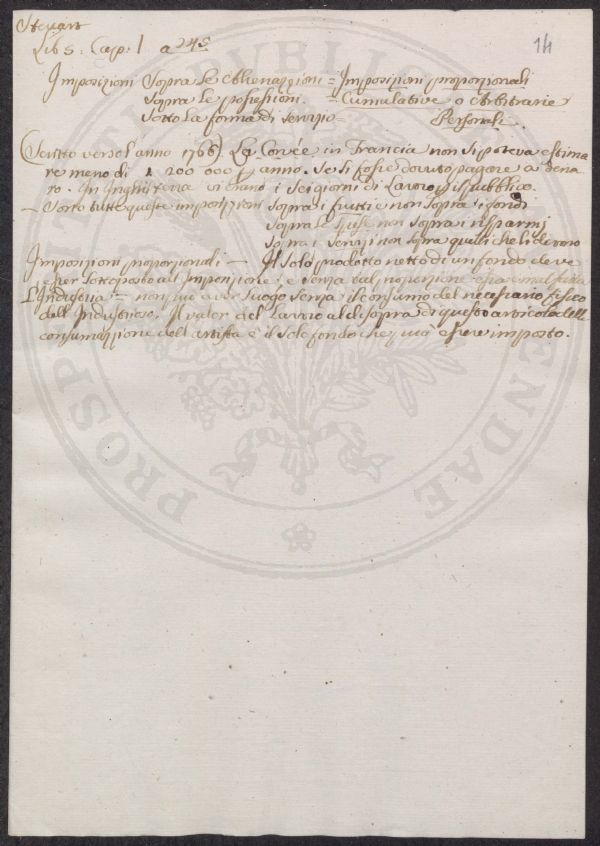 Stevart
Lib 5: Cap: 1 a
14
Imposizioni Sopra le Alienazzioni = Imposizioni proporzionali
Sopra le possessioni. = Cumulative o Arbitrarie
Sotto la forma di servizio = Personali
(Scritto verso l'anno 1766) La Corvée in Francia non si poteva estima
re meno di 1 200 000 £ anno. Se si fosse dovuto pagare a dena
ro. In Inghilterra vi erano i sei giorni di Lavoro pubblico.
— Sono tutte queste imposizioni sopra i frutti e non sopra i fondi
sopra le spese non sopra i risparmj
sopra i servizi non sopra quelli che li devono
Imposizioni proporzionali — Il solo prodotto netto di un fondo deve
esser sottoposto all Imposizione, e senza tal
L'Industria = non può aver luogo senza il consumo del necessario fisico
dell Industrioso. Il valor del Lavoro al di sopra di questo articolo della
consumazzione dell artista è il solo fondo che può essere imposto.
PROSPERITATI PUBLICAE AUGENDAE